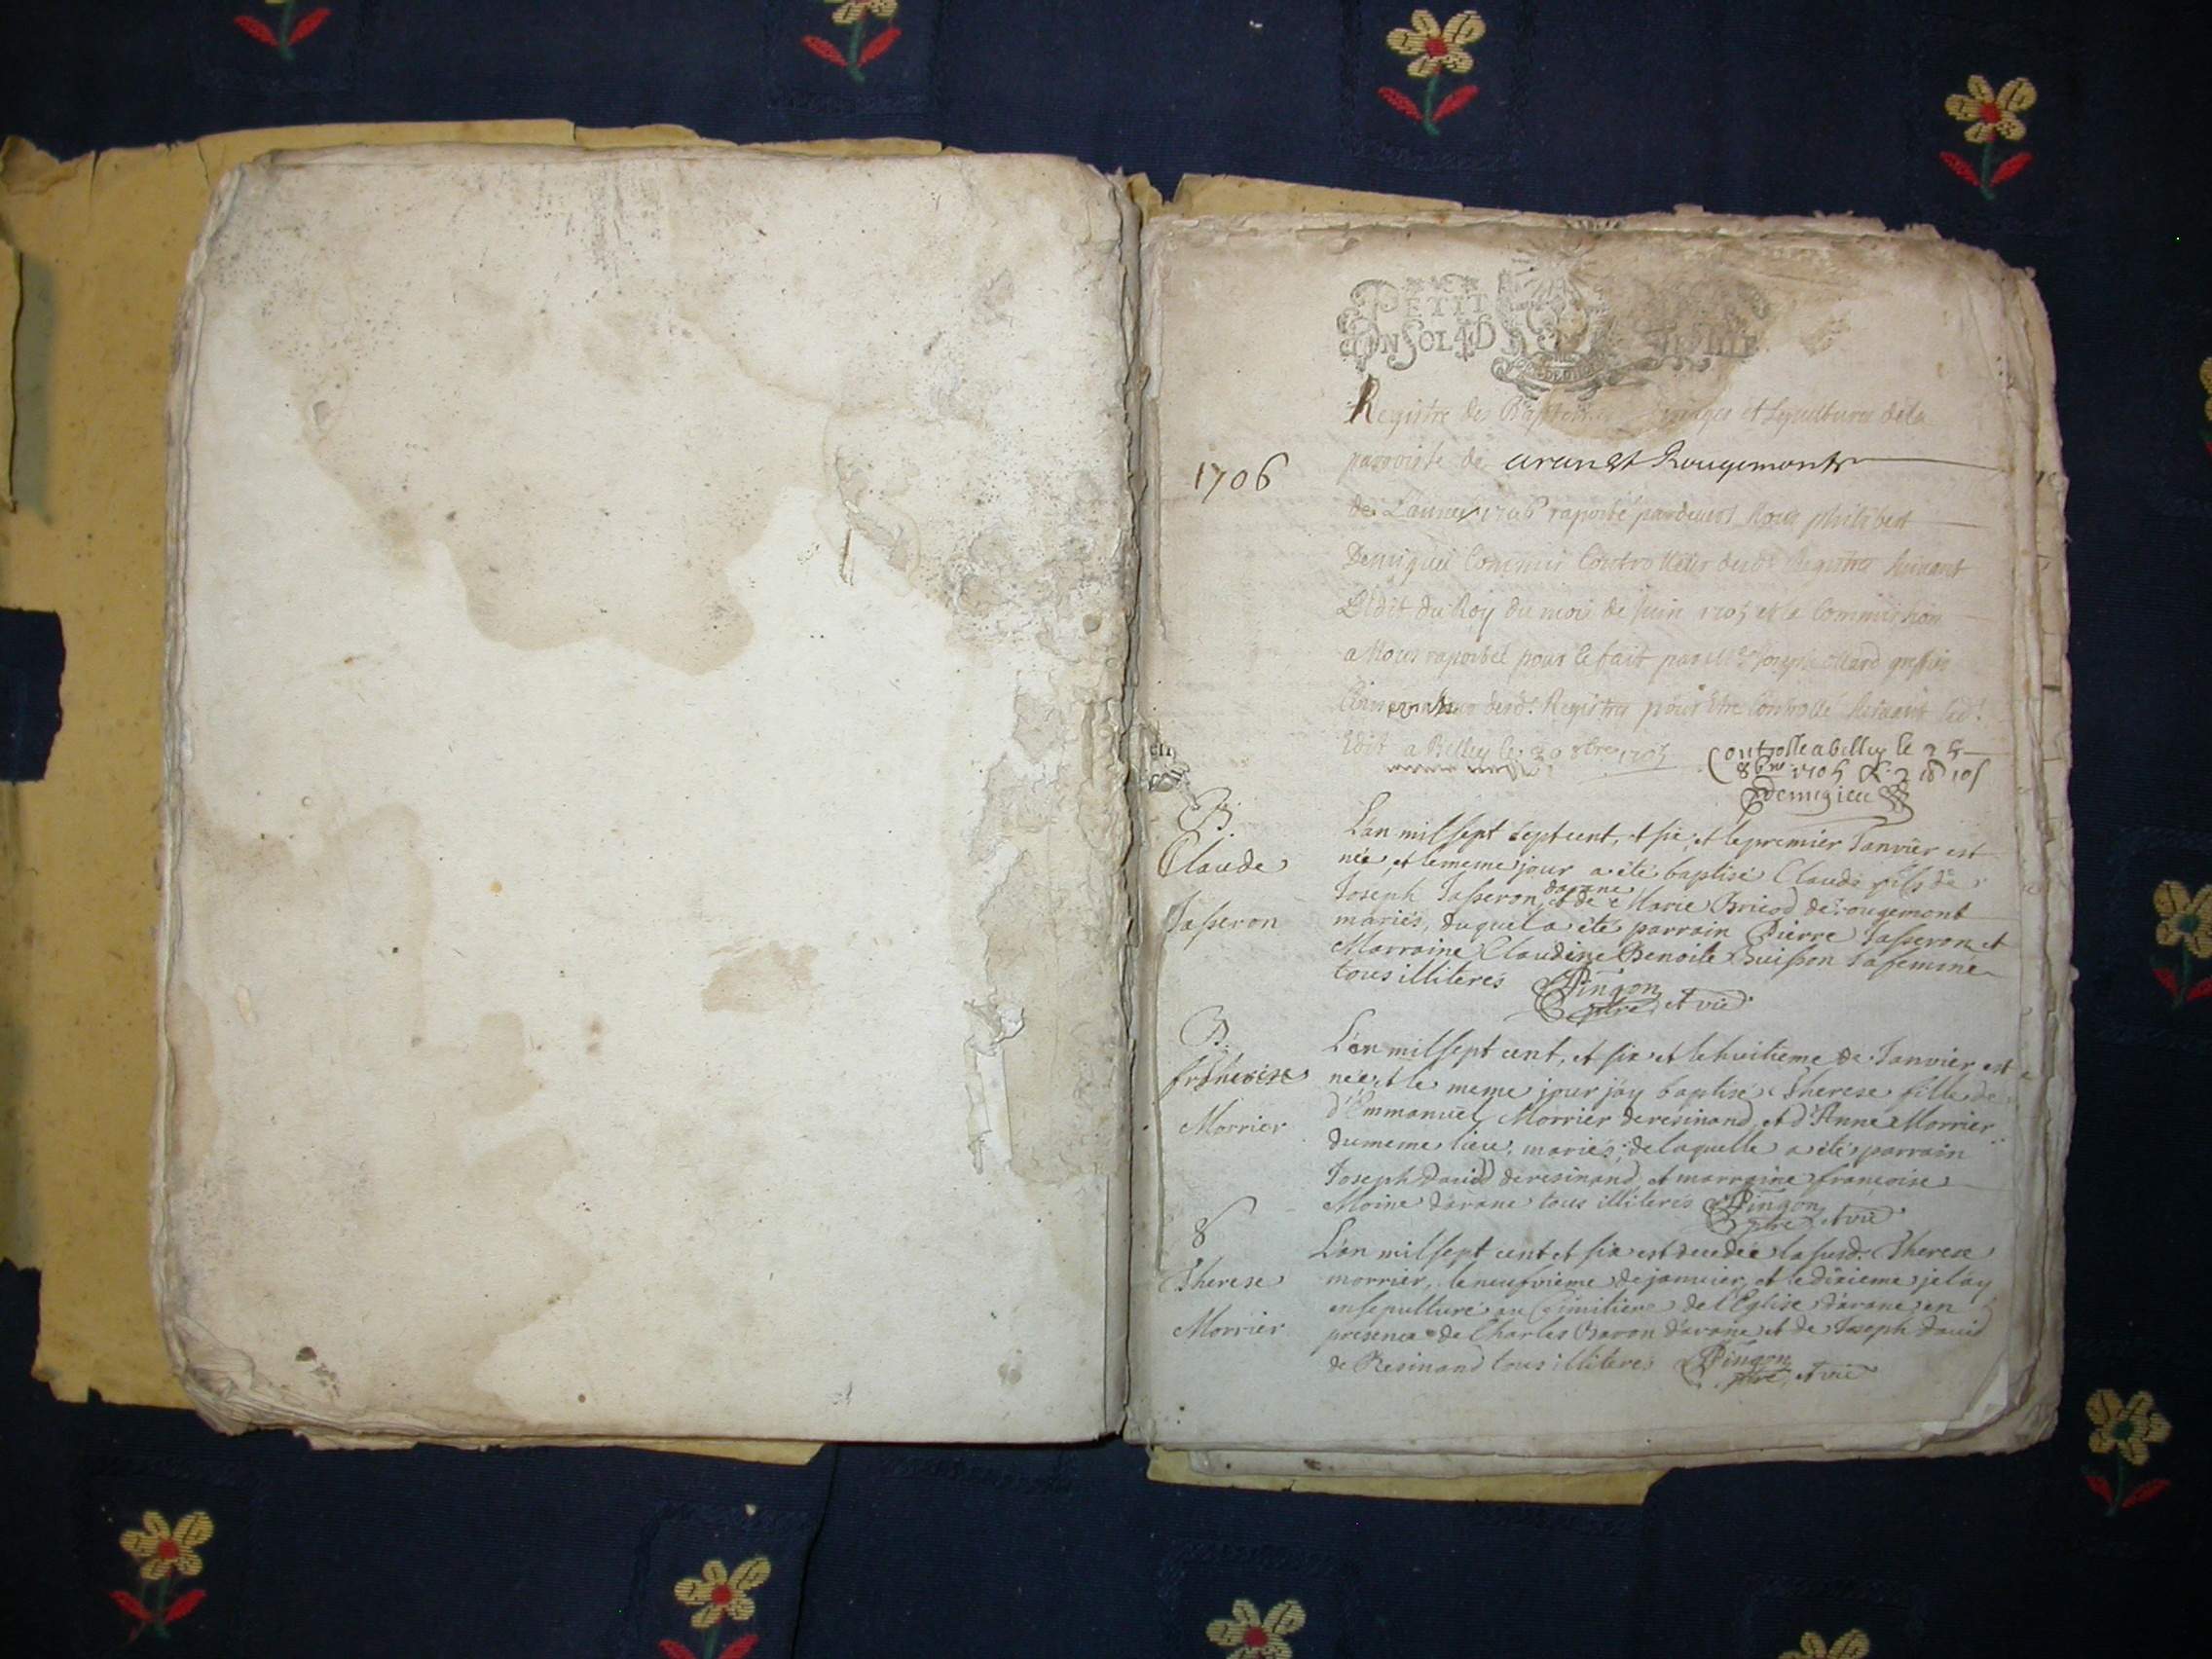 PETIT
UN SOL 4D
1706
Registre des Baptemes et Sepultures de la
parroisse de aran et Rougemont
de L'année 1706 raporté pardevant Nous philibert
Demigieu Commis Controlleur desd. Registres suivant
L'Edit du Roy du mois de Juin 1705 et la Commission
a Nous raportée pour le fait par Me Joseph greffier
desd. Registres pour être Controllé suivant led.
Edit a Belley le 8bre 1705
Controlle a belley le 25
8bre 1705 R. 2 10s
Demigieu
B.
Claude
Jasseron
L'an mil sept sept cent, et six, et le premier Janvier est
née, et le meme jour a été baptisé Claude fils de
Joseph Jasseron darane et de Marie Bricod de rougemont
mariés, duquel a été parrain Pierre Jasseron et
Marraine Claudine Benoite Buisson sa femme
tous illiteres Pingon
ptre et vic.
B.
Therese
Morrier
L'an mil sept cent, et six et le huitieme de Janvier est
née, et le meme jour jay baptisé Therese fille de
d'Emmanuel Morrier de resinand, et d'Anne Morrier
du meme lieu, mariés, de laquelle a été parrain
Joseph David de resinand, et marraine francoise
Moine darane tous illiterés Pingon
ptre et vic.
S
Therese
Morrier
L'an mil sept cent et six est decedée la susd. Therese
morrier, le neufvieme de janvier, et le dixieme je l'ay
ensepulturé au Cimitiere de l'Eglise d'arane, en
presence de Charles Baron d'arane et de Joseph David
de Resinand tous illiteres Pingon
ptre, et vic